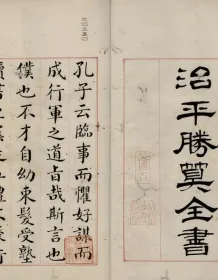 治平勝算全書
孔子云臨事而懼好謀而
成行軍之道旨哉斯言也
僕也不才自幼束髮受塾
讀書